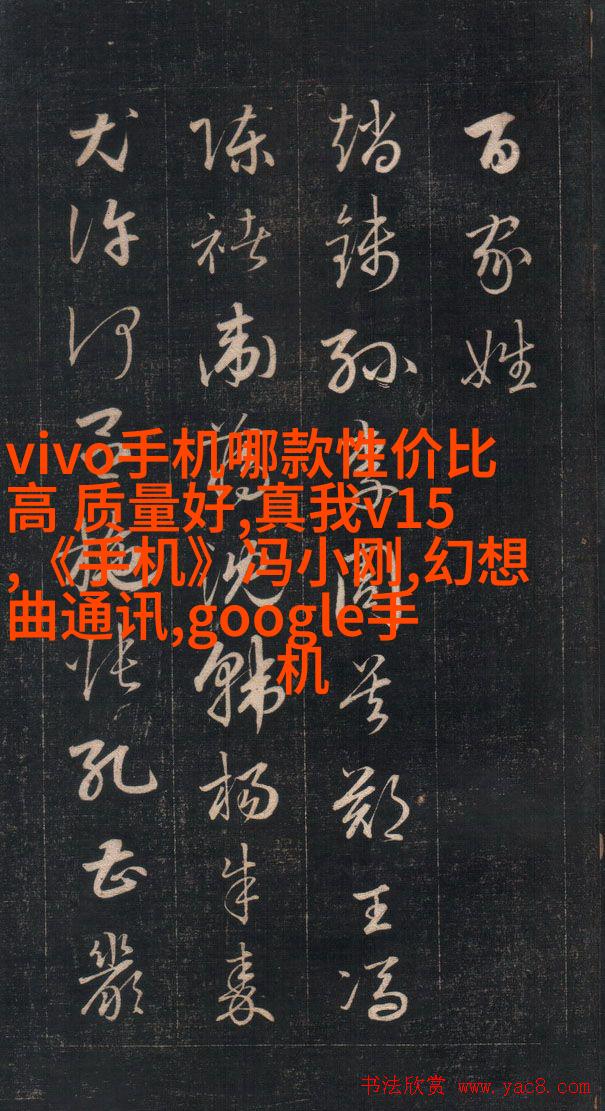 百家姓
趙錢孫李周吳鄭王馮
陳褚衛蔣沈韓楊朱秦
尤許何呂施張孔曹嚴
vivo手机哪款性价比
高 质量好,真我v15
,《手机》 冯小刚,幻想
曲通讯,google手
机
书法欣赏 www.yac8.com